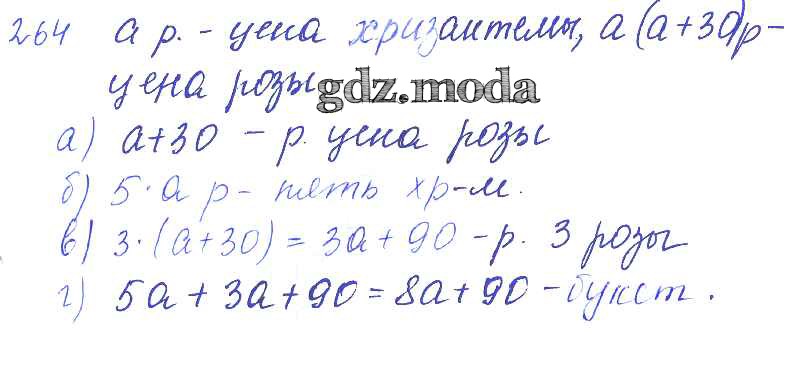 264 а р. - цена хризантемы, а (а+30)р-
цена розы gdz.moda
а) а+30 - р. цена розы
б) 5·а р - пять хр-м.
в) 3·(а+30) = 3а+90 - р. 3 розы
г) 5а+3а+90=8а+90 - букет.